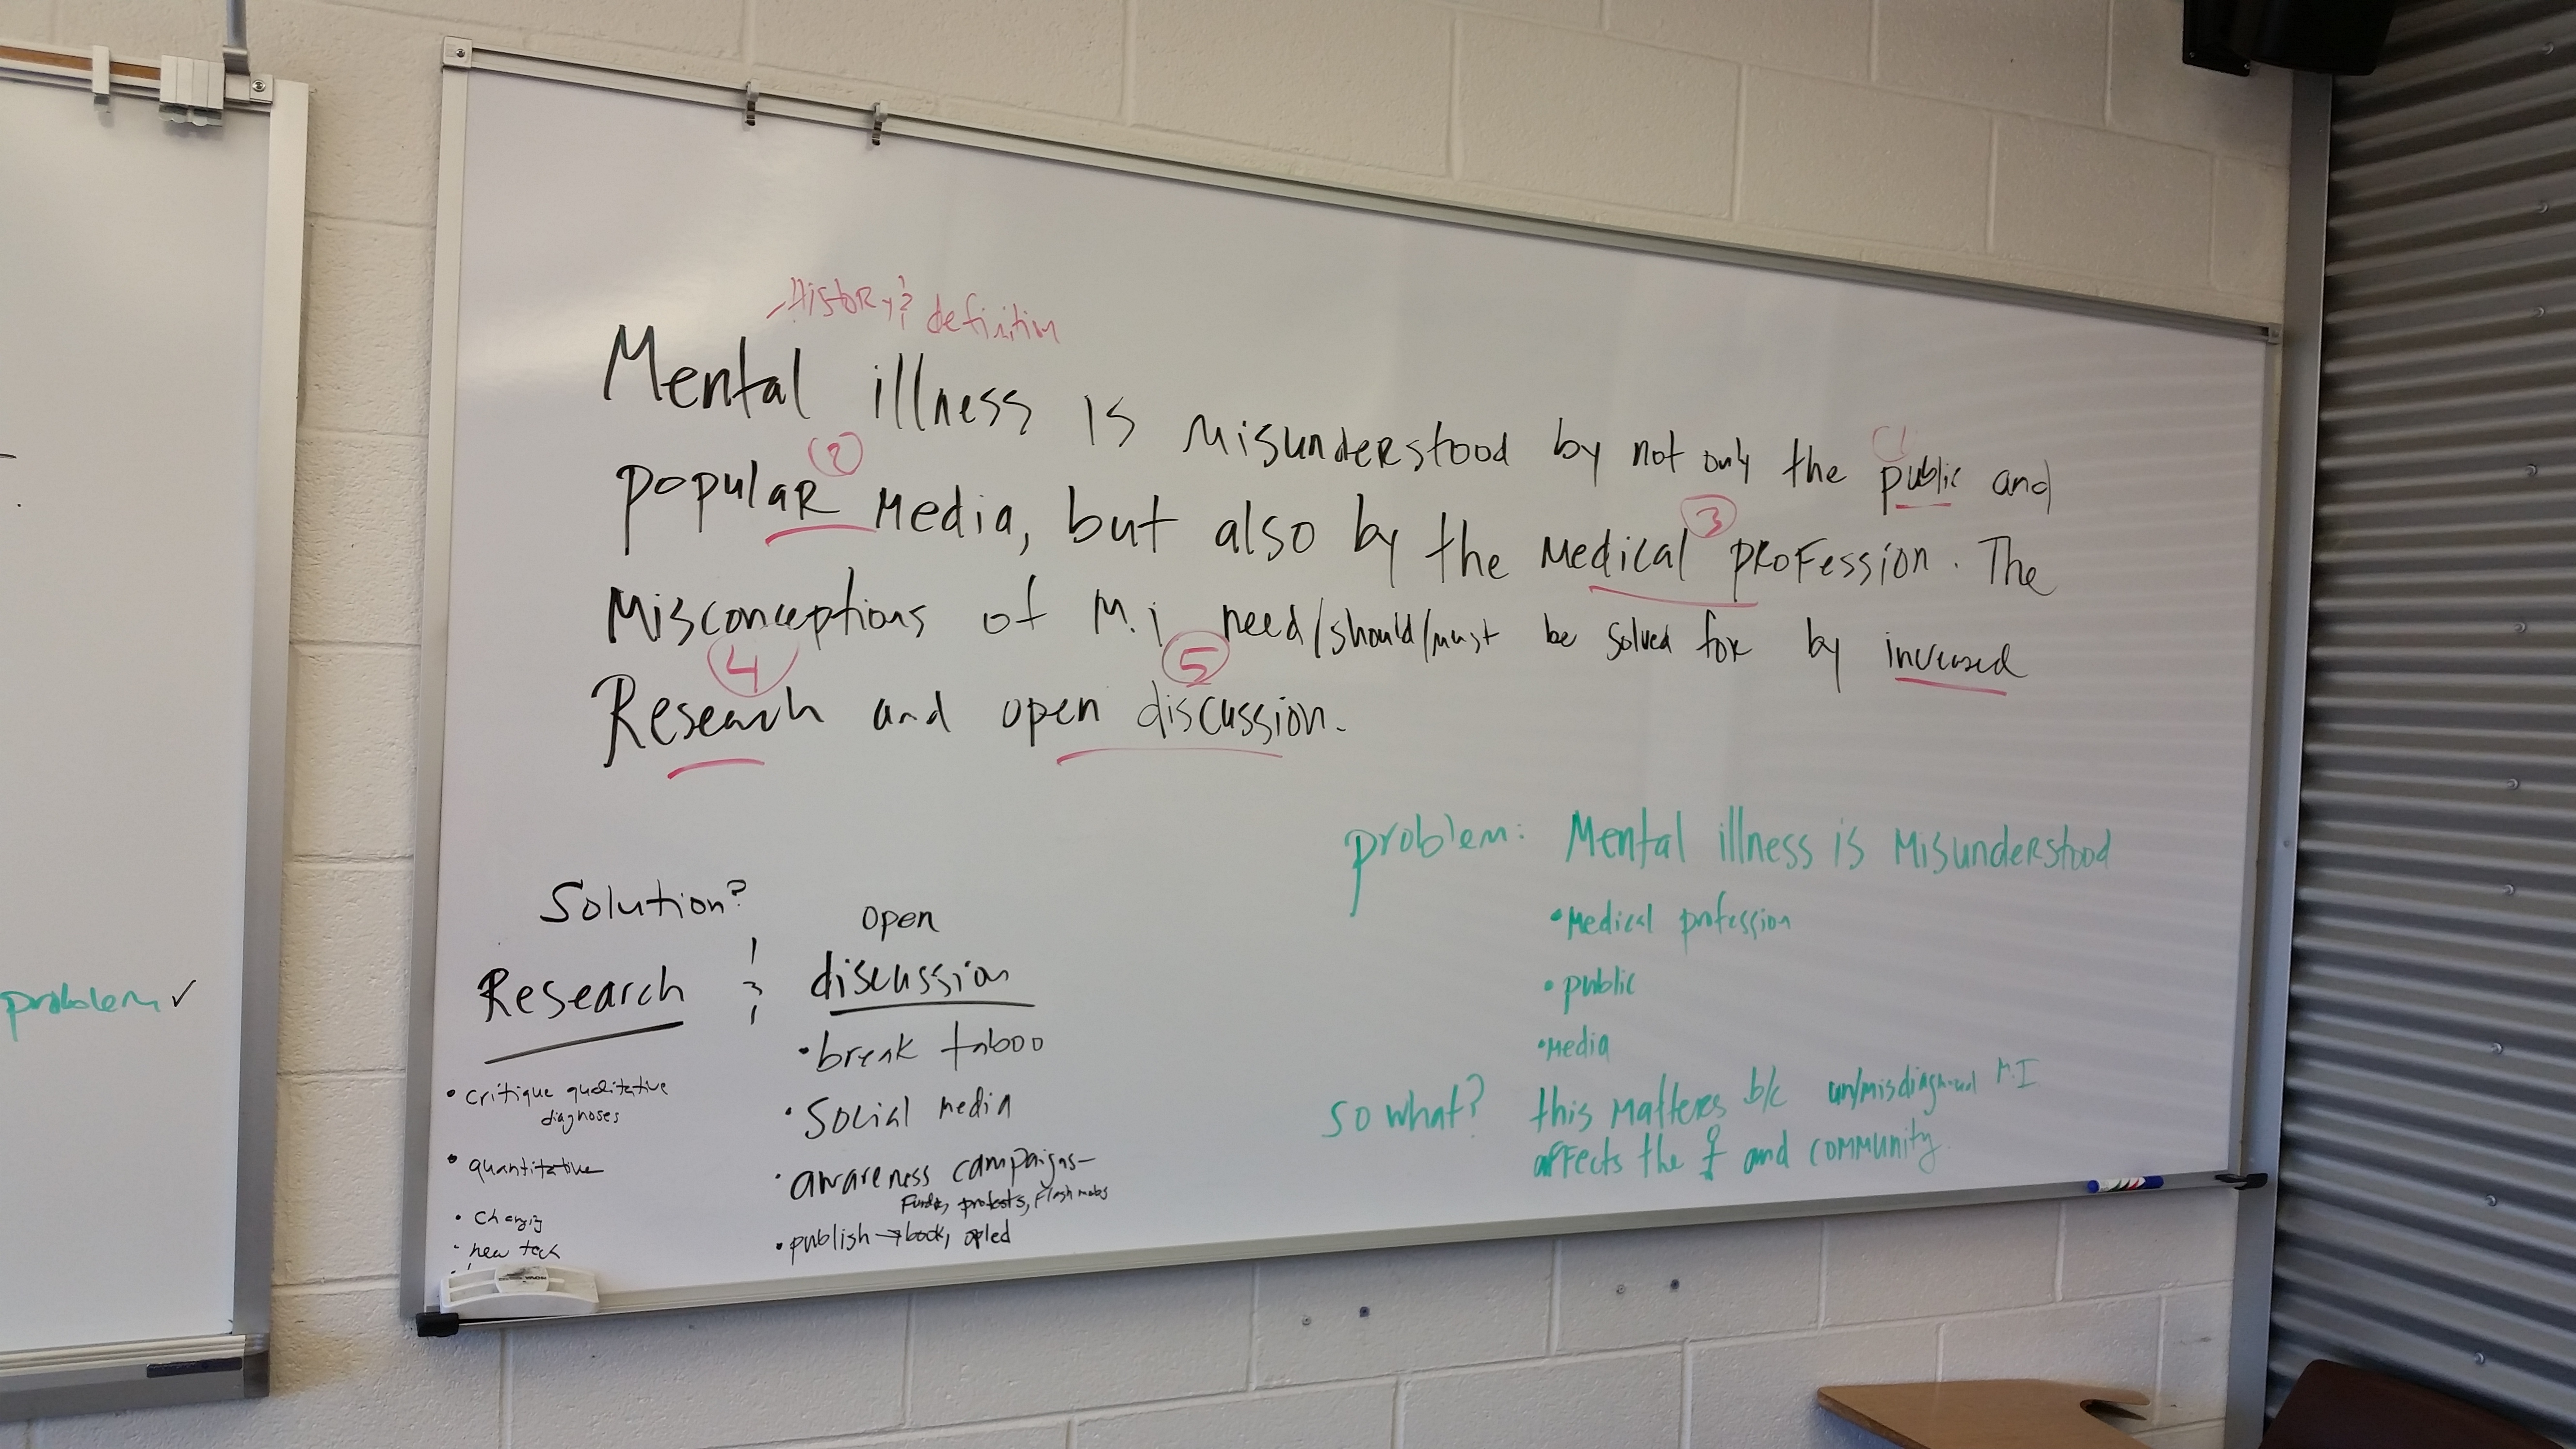 History & definition
Mental illness is misunderstood by not only the public and
popular media, but also by the medical profession. The
2
1
3
misconceptions of M.i need/should/must be solved for by increased
4
5
Research and open discussion.
Solution?
Research &
open
discussion
• critique qualitative
diagnoses
• quantitative
• changing
• new tech
• break taboo
• social media
• awareness campaigns-
protests, flash mobs
• publish → book, oped
problem: Mental illness is misunderstood
• Medical profession
• public
• media
so what? this matters b/c un/misdiagnosed M.I
affects the and community.
problem ✓